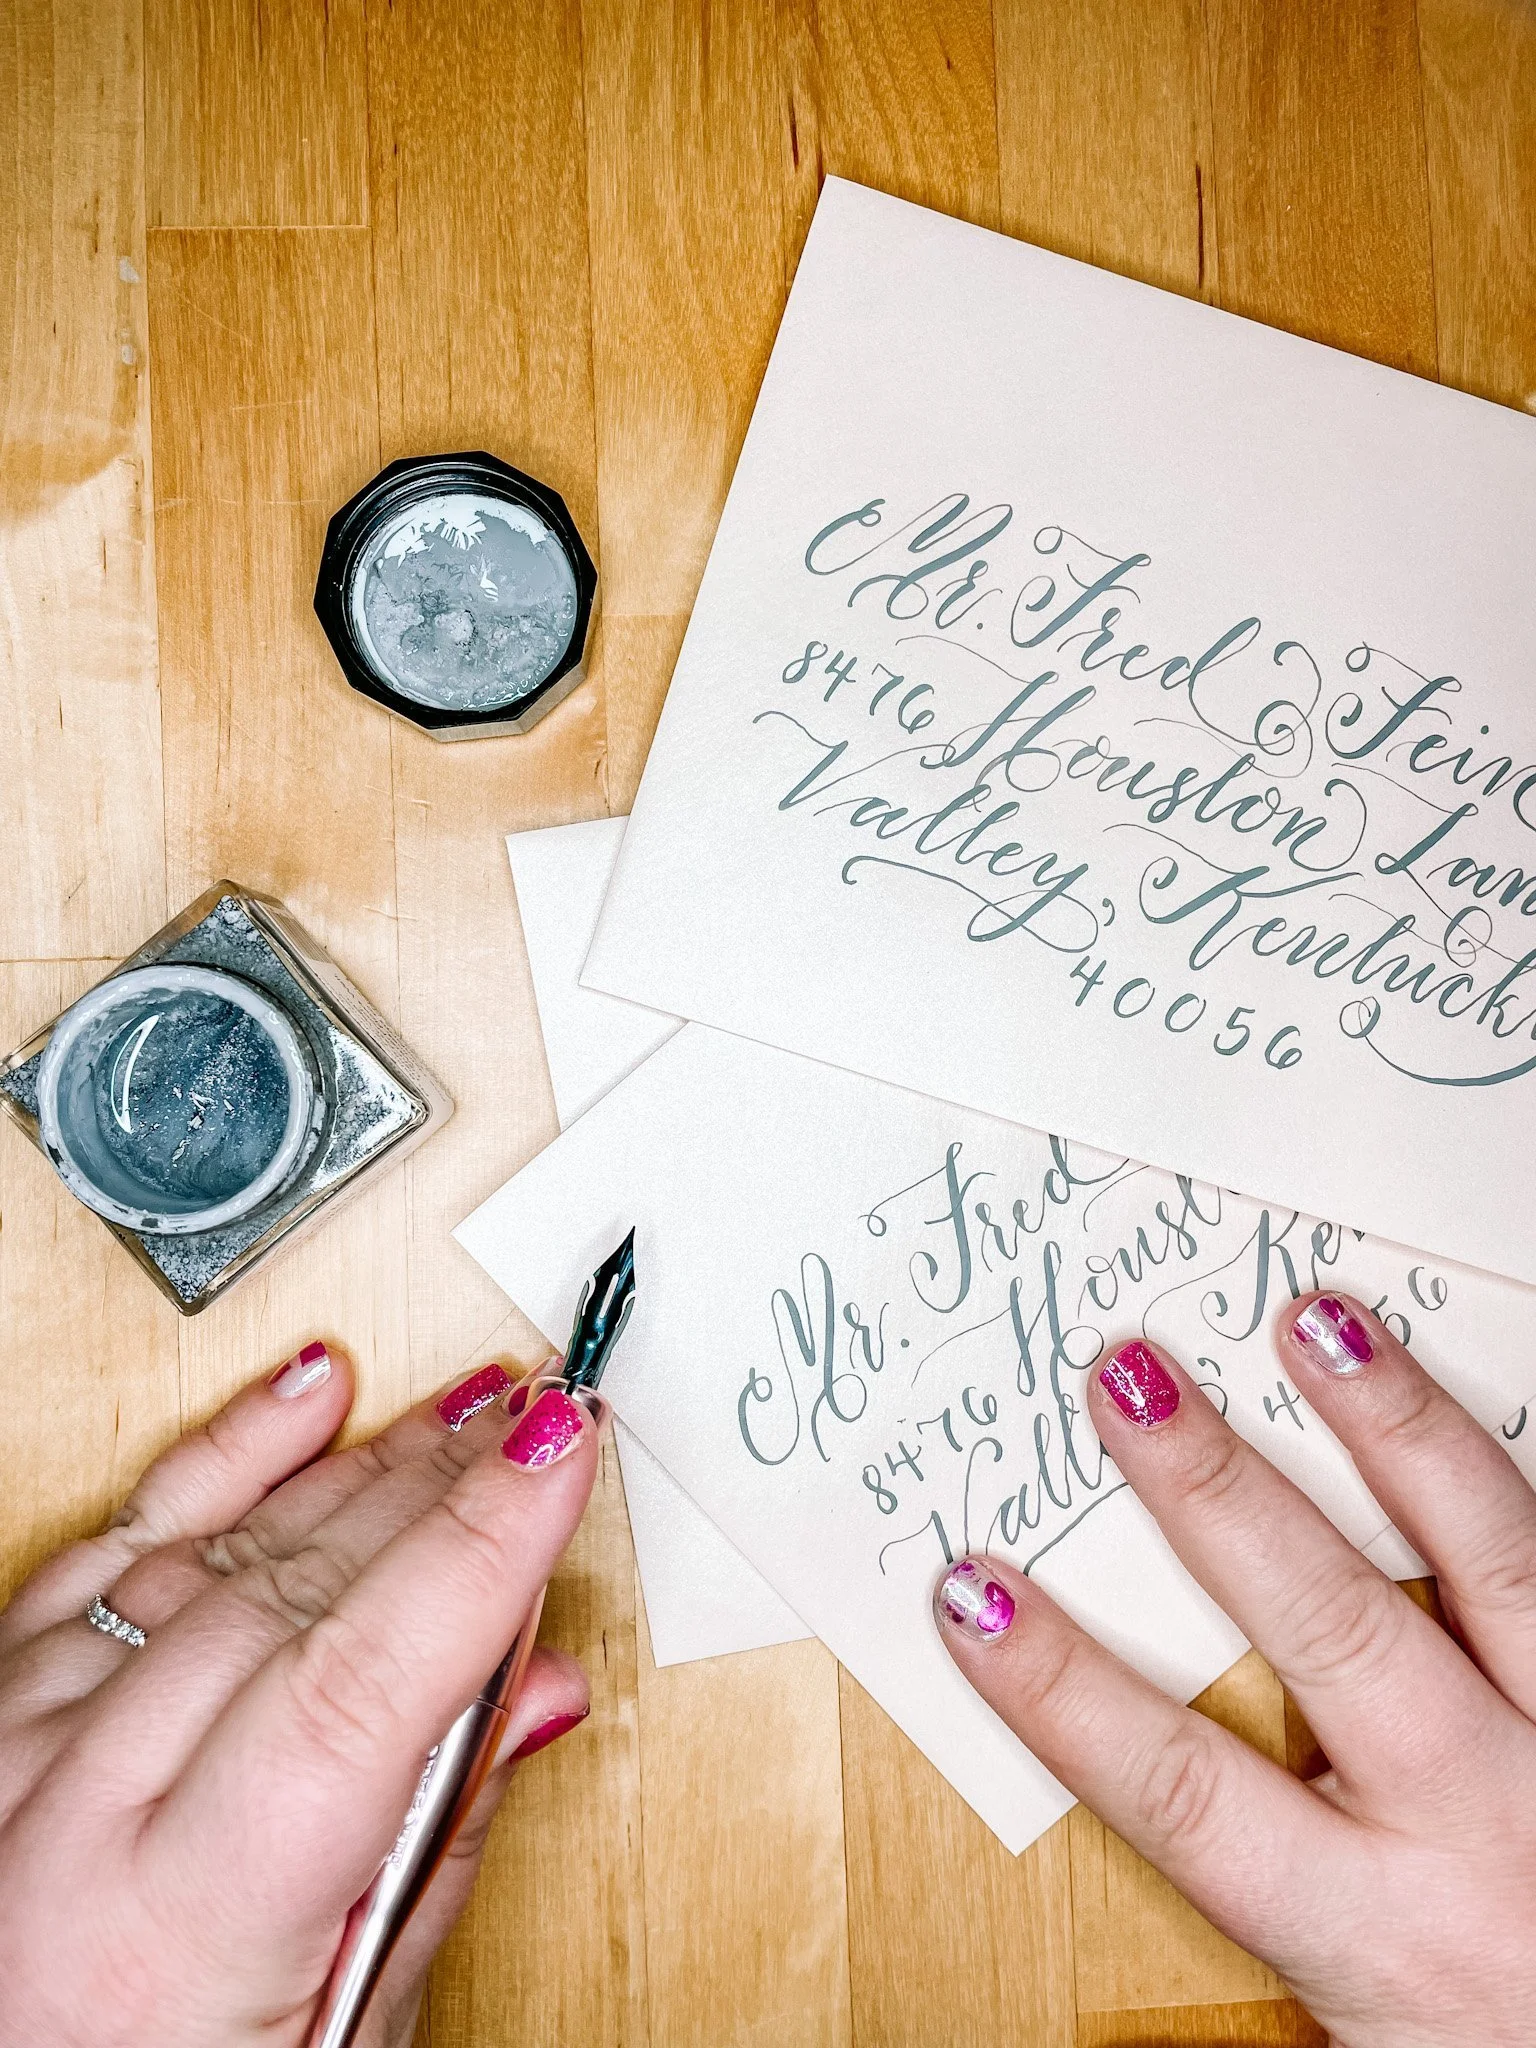 Mr. Fred
8476 Houston
Valley, Kentuck
40056
Mr. Fred
8476 Houst
Vall Ke
4 56